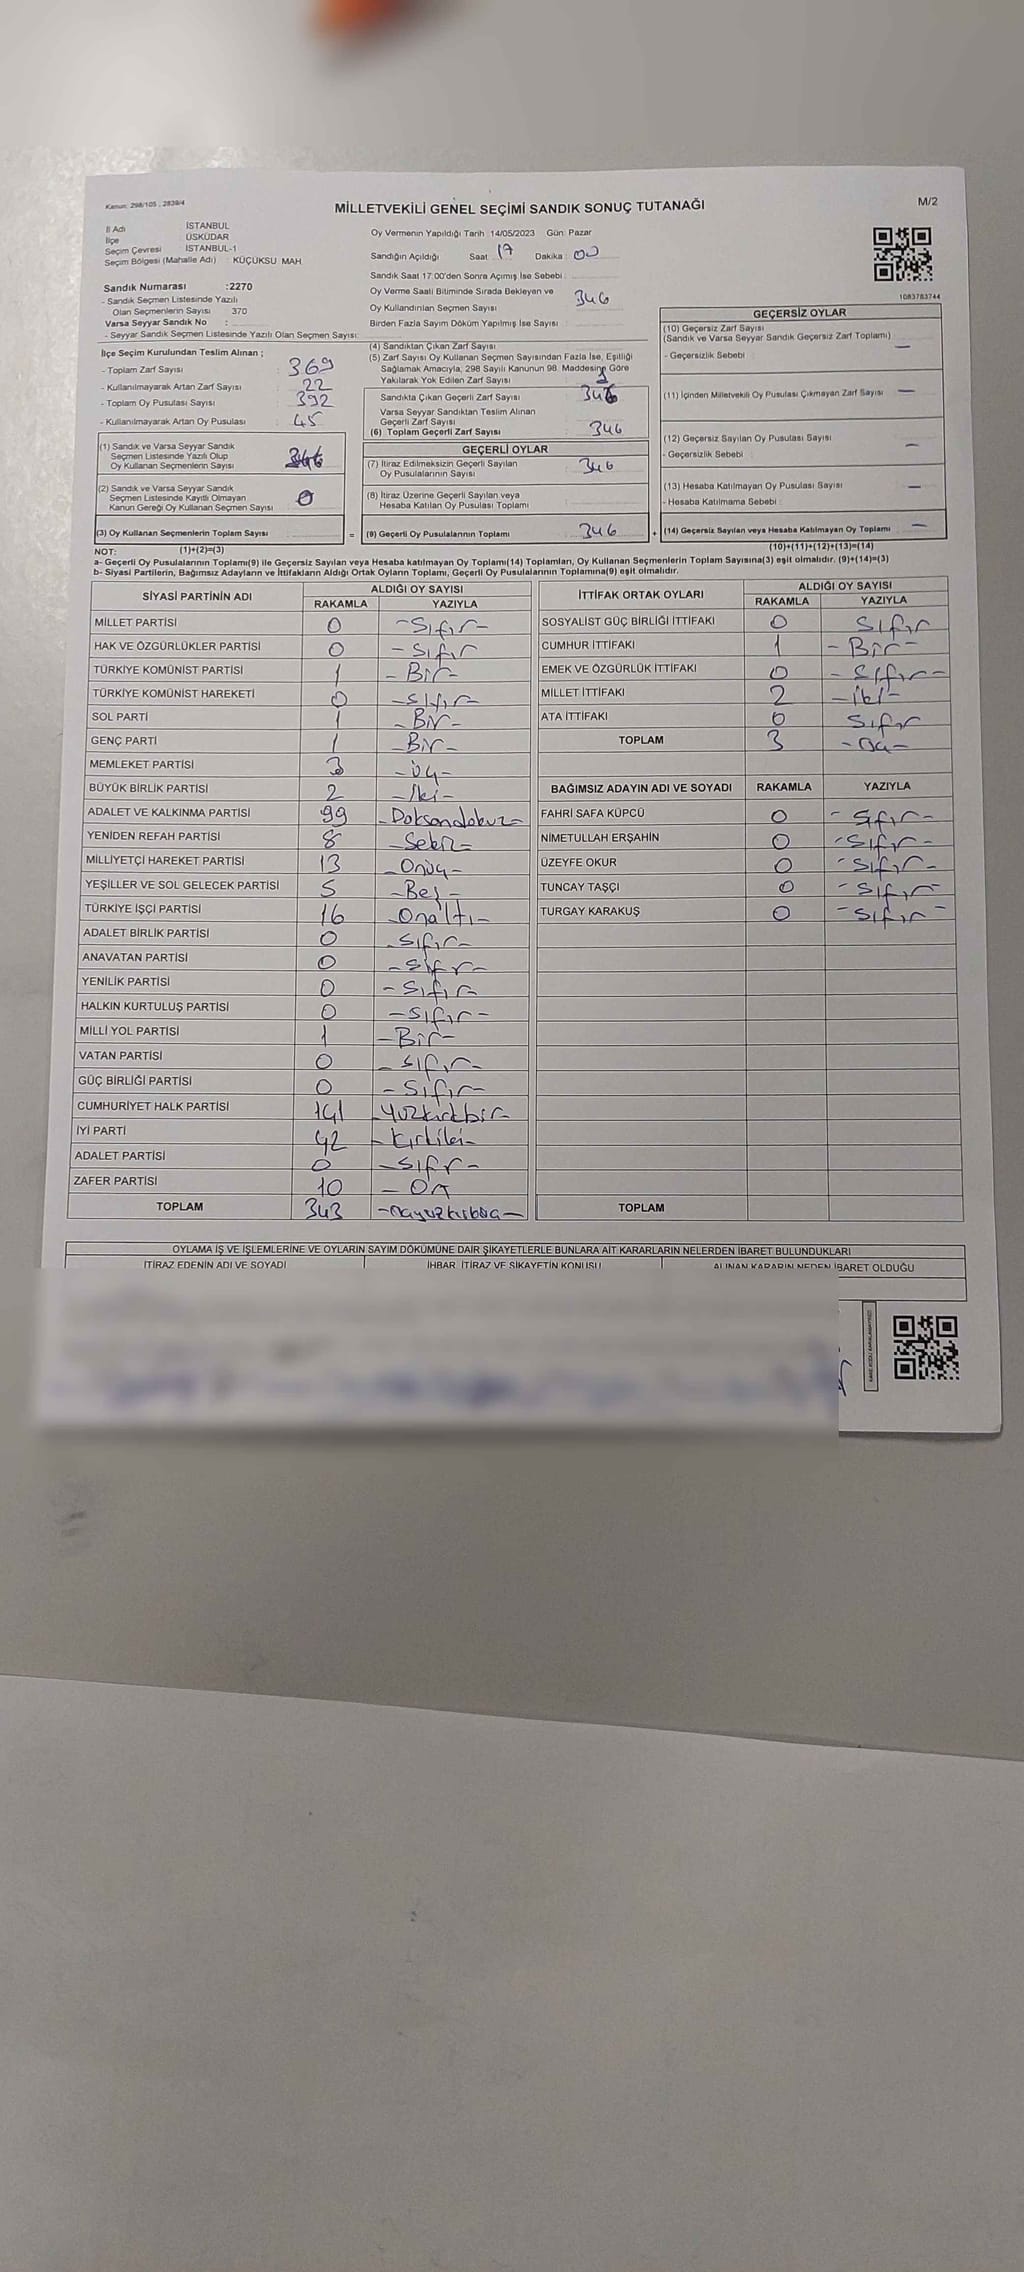 Kanun: 298/105 , 2839/4
MİLLETVEKİLİ GENEL SEÇİMİ SANDIK SONUÇ TUTANAĞI
M/2
İl Adı İSTANBUL
İlçe ÜSKÜDAR
Seçim Çevresi İSTANBUL-1
Seçim Bölgesi (Mahalle Adı) : KÜÇÜKSU MAH.
Oy Vermenin Yapıldığı Tarih : 14/05/2023 Gün: Pazar
Sandığın Açıldığı Saat 17 Dakika : 00
Sandık Saat 17:00'den Sonra Açımış İse Sebebi :
Oy Verme Saati Bitiminde Sırada Bekleyen ve
Oy Kullandırılan Seçmen Sayısı 346
Birden Fazla Sayım Döküm Yapılmış İse Sayısı :
Sandık Numarası :2270
- Sandık Seçmen Listesinde Yazılı
Olan Seçmenlerin Sayısı 370
Varsa Seyyar Sandık No :
- Seyyar Sandık Seçmen Listesinde Yazılı Olan Seçmen Sayısı:
İlçe Seçim Kurulundan Teslim Alınan ;
- Toplam Zarf Sayısı : 369
- Kullanılmayarak Artan Zarf Sayısı : 22
- Toplam Oy Pusulası Sayısı : 392
- Kullanılmayarak Artan Oy Pusulası : 45
(1) Sandık ve Varsa Seyyar Sandık
Seçmen Listesinde Yazılı Olup
Oy Kullanan Seçmenlerin Sayısı 346
(2) Sandık ve Varsa Seyyar Sandık
Seçmen Listesinde Kayıtlı Olmayan
Kanun Gereği Oy Kullanan Seçmen Sayısı 0
(3) Oy Kullanan Seçmenlerin Toplam Sayısı
(4) Sandıktan Çıkan Zarf Sayısı
(5) Zarf Sayısı Oy Kullanan Seçmen Sayısından Fazla İse, Eşitliği
Sağlamak Amacıyla, 298 Sayılı Kanunun 98. Maddesine Göre
Yakılarak Yok Edilen Zarf Sayısı 1
Sandıkta Çıkan Geçerli Zarf Sayısı 346
Varsa Seyyar Sandıktan Teslim Alınan
Geçerli Zarf Sayısı
(6) Toplam Geçerli Zarf Sayısı 346
GEÇERLİ OYLAR
(7) İtiraz Edilmeksizin Geçerli Sayılan
Oy Pusulalarının Sayısı 346
(8) İtiraz Üzerine Geçerli Sayılan veya
Hesaba Katılan Oy Pusulası Toplamı
= (9) Geçerli Oy Pusulalarının Toplamı 346 +
1083783744
GEÇERSİZ OYLAR
(10) Geçersiz Zarf Sayısı
(Sandık ve Varsa Seyyar Sandık Geçersiz Zarf Toplamı) —
- Geçersizlik Sebebi
(11) İçinden Milletvekili Oy Pusulası Çıkmayan Zarf Sayısı —
(12) Geçersiz Sayılan Oy Pusulası Sayısı —
- Geçersizlik Sebebi :
(13) Hesaba Katılmayan Oy Pusulası Sayısı —
- Hesaba Katılmama Sebebi :
(14) Geçersiz Sayılan veya Hesaba Katılmayan Oy Toplamı —
NOT: (1)+(2)=(3) (10)+(11)+(12)+(13)=(14)
a- Geçerli Oy Pusulalarının Toplamı(9) ile Geçersiz Sayılan veya Hesaba katılmayan Oy Toplamı(14) Toplamları, Oy Kullanan Seçmenlerin Toplam Sayısına(3) eşit olmalıdır. (9)+(14)=(3)
b- Siyasi Partilerin, Bağımsız Adayların ve İttifakların Aldığı Ortak Oyların Toplamı, Geçerli Oy Pusulalarının Toplamına(9) eşit olmalıdır.
SİYASİ PARTİNİN ADI ALDIĞI OY SAYISI
RAKAMLA YAZIYLA
MİLLET PARTİSİ 0 -Sıfır-
HAK VE ÖZGÜRLÜKLER PARTİSİ 0 -Sıfır
TÜRKİYE KOMÜNİST PARTİSİ 1 -Bir-
TÜRKİYE KOMÜNİST HAREKETİ 0 -Sıfır-
SOL PARTİ 1 -Bir-
GENÇ PARTİ 1 -Bir-
MEMLEKET PARTİSİ 3 -Üç-
BÜYÜK BİRLİK PARTİSİ 2 -İki-
ADALET VE KALKINMA PARTİSİ 99 -Doksandokuz-
YENİDEN REFAH PARTİSİ 8 -Sekiz-
MİLLİYETÇİ HAREKET PARTİSİ 13 -Onüç-
YEŞİLLER VE SOL GELECEK PARTİSİ 5 -Beş-
TÜRKİYE İŞÇİ PARTİSİ 16 -Onaltı-
ADALET BİRLİK PARTİSİ 0 -Sıfır-
ANAVATAN PARTİSİ 0 -Sıfır-
YENİLİK PARTİSİ 0 -Sıfır
HALKIN KURTULUŞ PARTİSİ 0 -Sıfır-
MİLLİ YOL PARTİSİ 1 -Bir-
VATAN PARTİSİ 0 -Sıfır-
GÜÇ BİRLİĞİ PARTİSİ 0 -Sıfır-
CUMHURİYET HALK PARTİSİ 141 -Yüzkırkbir-
İYİ PARTİ 42 -Kırkiki-
ADALET PARTİSİ 0 -Sıfır-
ZAFER PARTİSİ 10 -On
TOPLAM 343
İTTİFAK ORTAK OYLARI ALDIĞI OY SAYISI
RAKAMLA YAZIYLA
SOSYALİST GÜÇ BİRLİĞİ İTTİFAKI 0 Sıfır
CUMHUR İTTİFAKI 1 -Bir-
EMEK VE ÖZGÜRLÜK İTTİFAKI 0 -Sıfır-
MİLLET İTTİFAKI 2 -İki-
ATA İTTİFAKI 0 Sıfır
TOPLAM 3 -Üç-
BAĞIMSIZ ADAYIN ADI VE SOYADI RAKAMLA YAZIYLA
FAHRİ SAFA KÜPCÜ 0 -Sıfır-
NİMETULLAH ERŞAHİN 0 -Sıfır-
ÜZEYFE OKUR 0 -Sıfır-
TUNCAY TAŞÇI 0 -Sıfır-
TURGAY KARAKUŞ 0 -Sıfır-
TOPLAM
OYLAMA İŞ VE İŞLEMLERİNE VE OYLARIN SAYIM DÖKÜMÜNE DAİR ŞİKAYETLERLE BUNLARA AİT KARARLARIN NELERDEN İBARET BULUNDUKLARI
İTİRAZ EDENİN ADI VE SOYADI İHBAR, İTİRAZ VE ŞİKAYETİN KONUSU ALINAN KARARIN NEDEN İBARET OLDUĞU